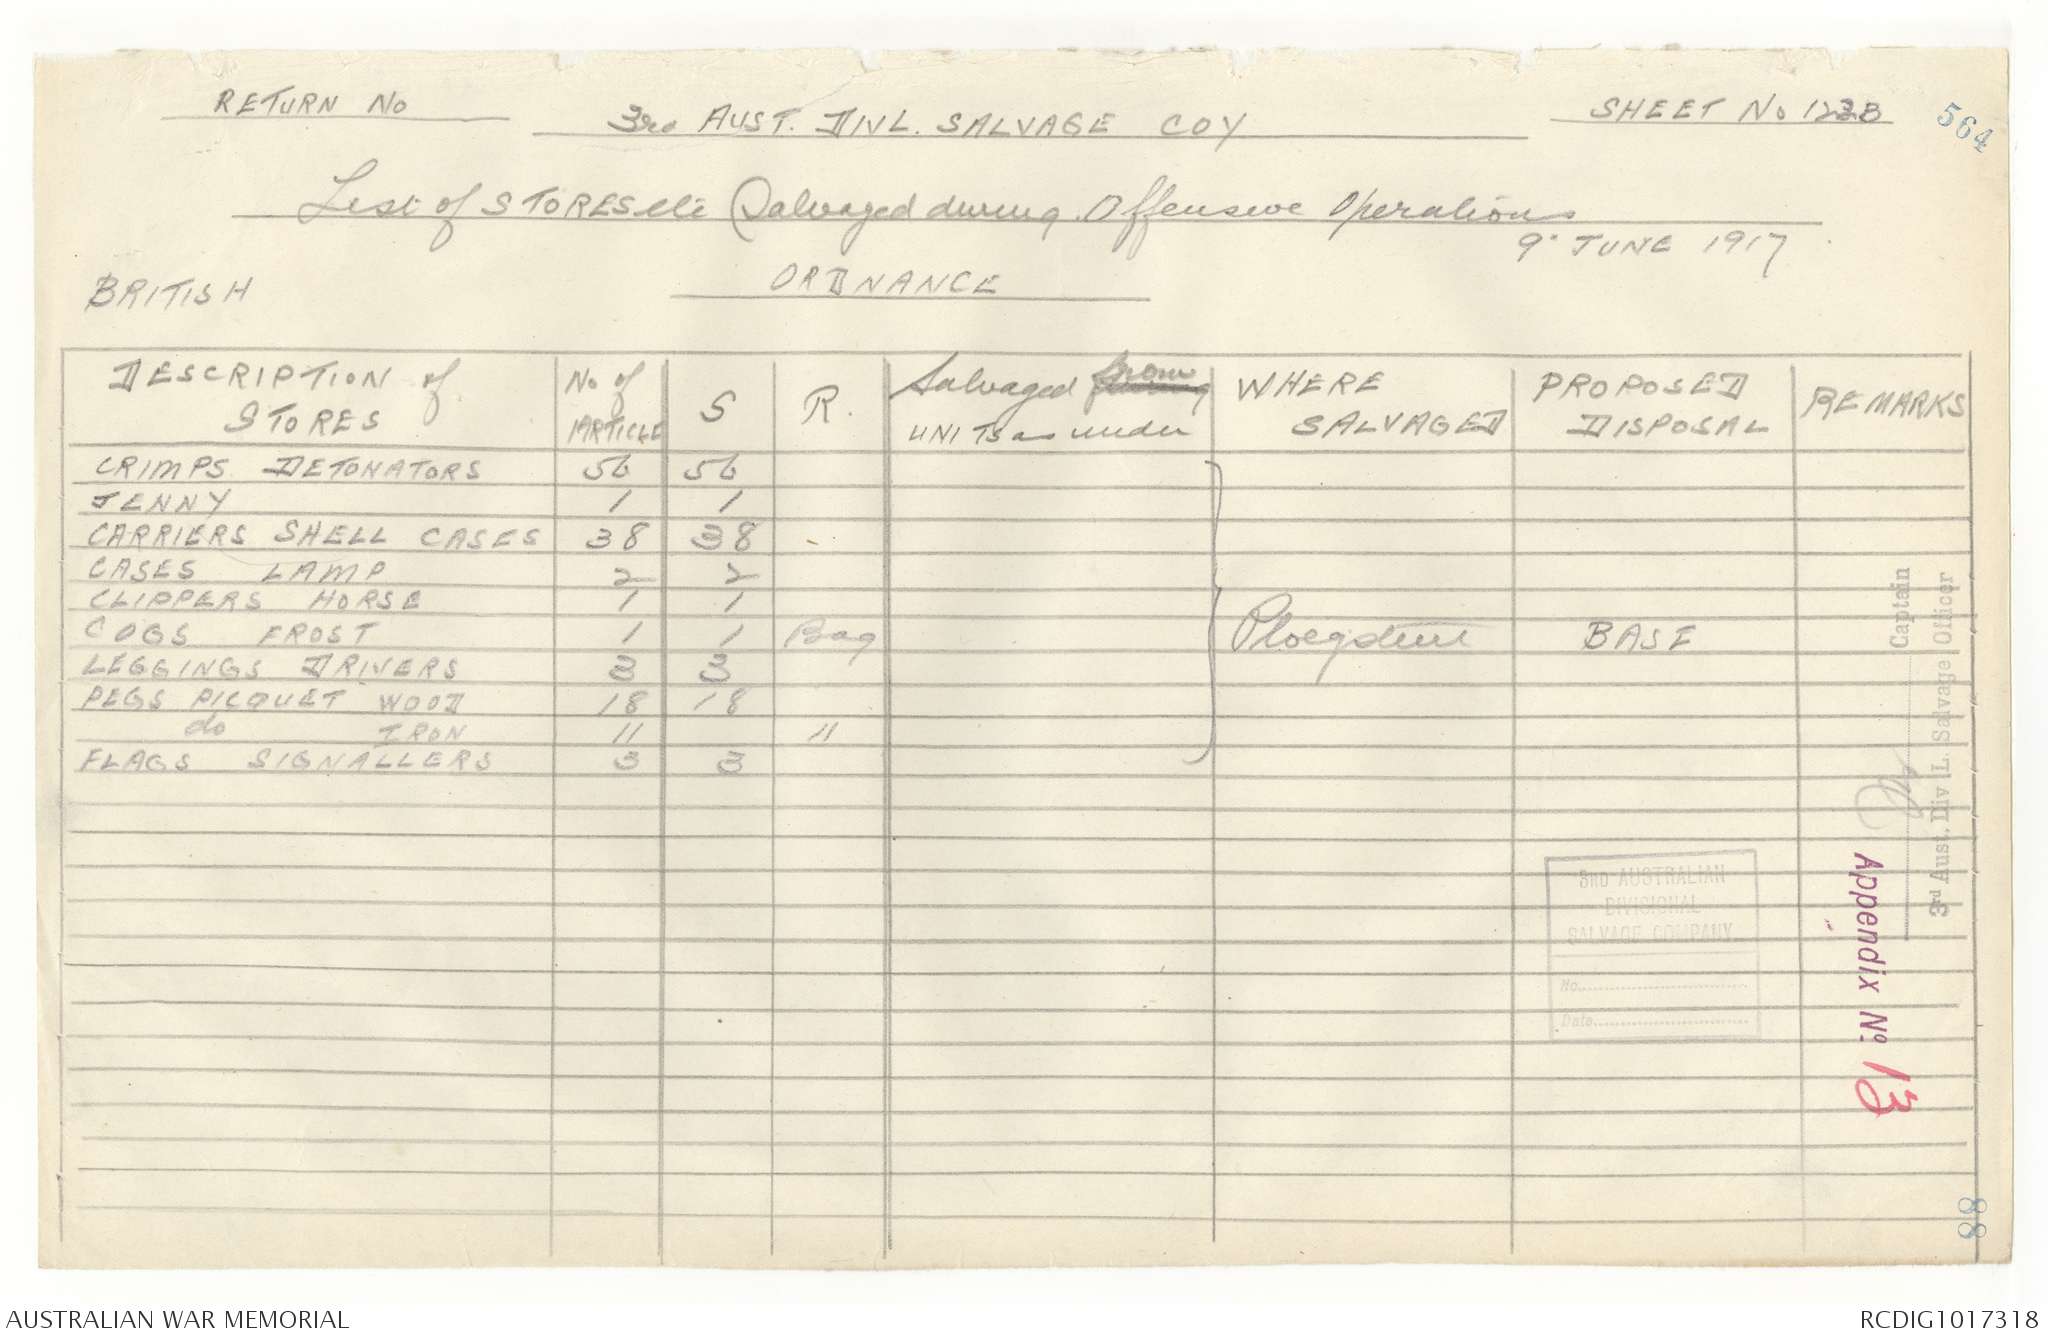 RETURN No
3RD AUST. DIVL. SALVAGE COY
SHEET No 123B
564
List of STORES etc Salvaged during Offensive Operations
9" JUNE 1917
BRITISH
ORDNANCE
DESCRIPTION of STORES No of ARTICLE S R. Salvaged from UNITS as under WHERE SALVAGED PROPOSED DISPOSAL REMARKS
CRIMPS DETONATORS 56 56
JENNY 1 1
CARRIERS SHELL CASES 38 38
CASES LAMP 2 2
CLIPPERS HORSE 1 1
COGS FROST 1 1 Bag Ploegsteert BASE
LEGGINGS DRIVERS 3 3
PEGS PICQUET WOOD 18 18
do IRON 11 11
FLAGS SIGNALLERS 3 3
Captain
3rd Aust. Div L. Salvage Officer
3RD AUSTRALIAN
DIVISIONAL
SALVAGE COMPANY
No.
Date
Appendix No. 13
88
AUSTRALIAN WAR MEMORIAL
RCDIG1017318